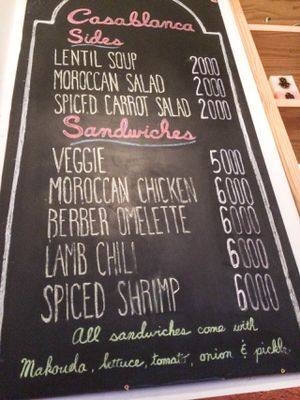 Casablanca
Sides
LENTIL SOUP 2000
MOROCCAN SALAD 2000
SPICED CARROT SALAD 2000
Sandwiches
VEGGIE 5000
MOROCCAN CHICKEN 6000
BERBER OMELETTE 6000
LAMB CHILI 6000
SPICED SHRIMP 6000
All sandwiches come with
Makouda, lettuce, tomato, onion & pickle